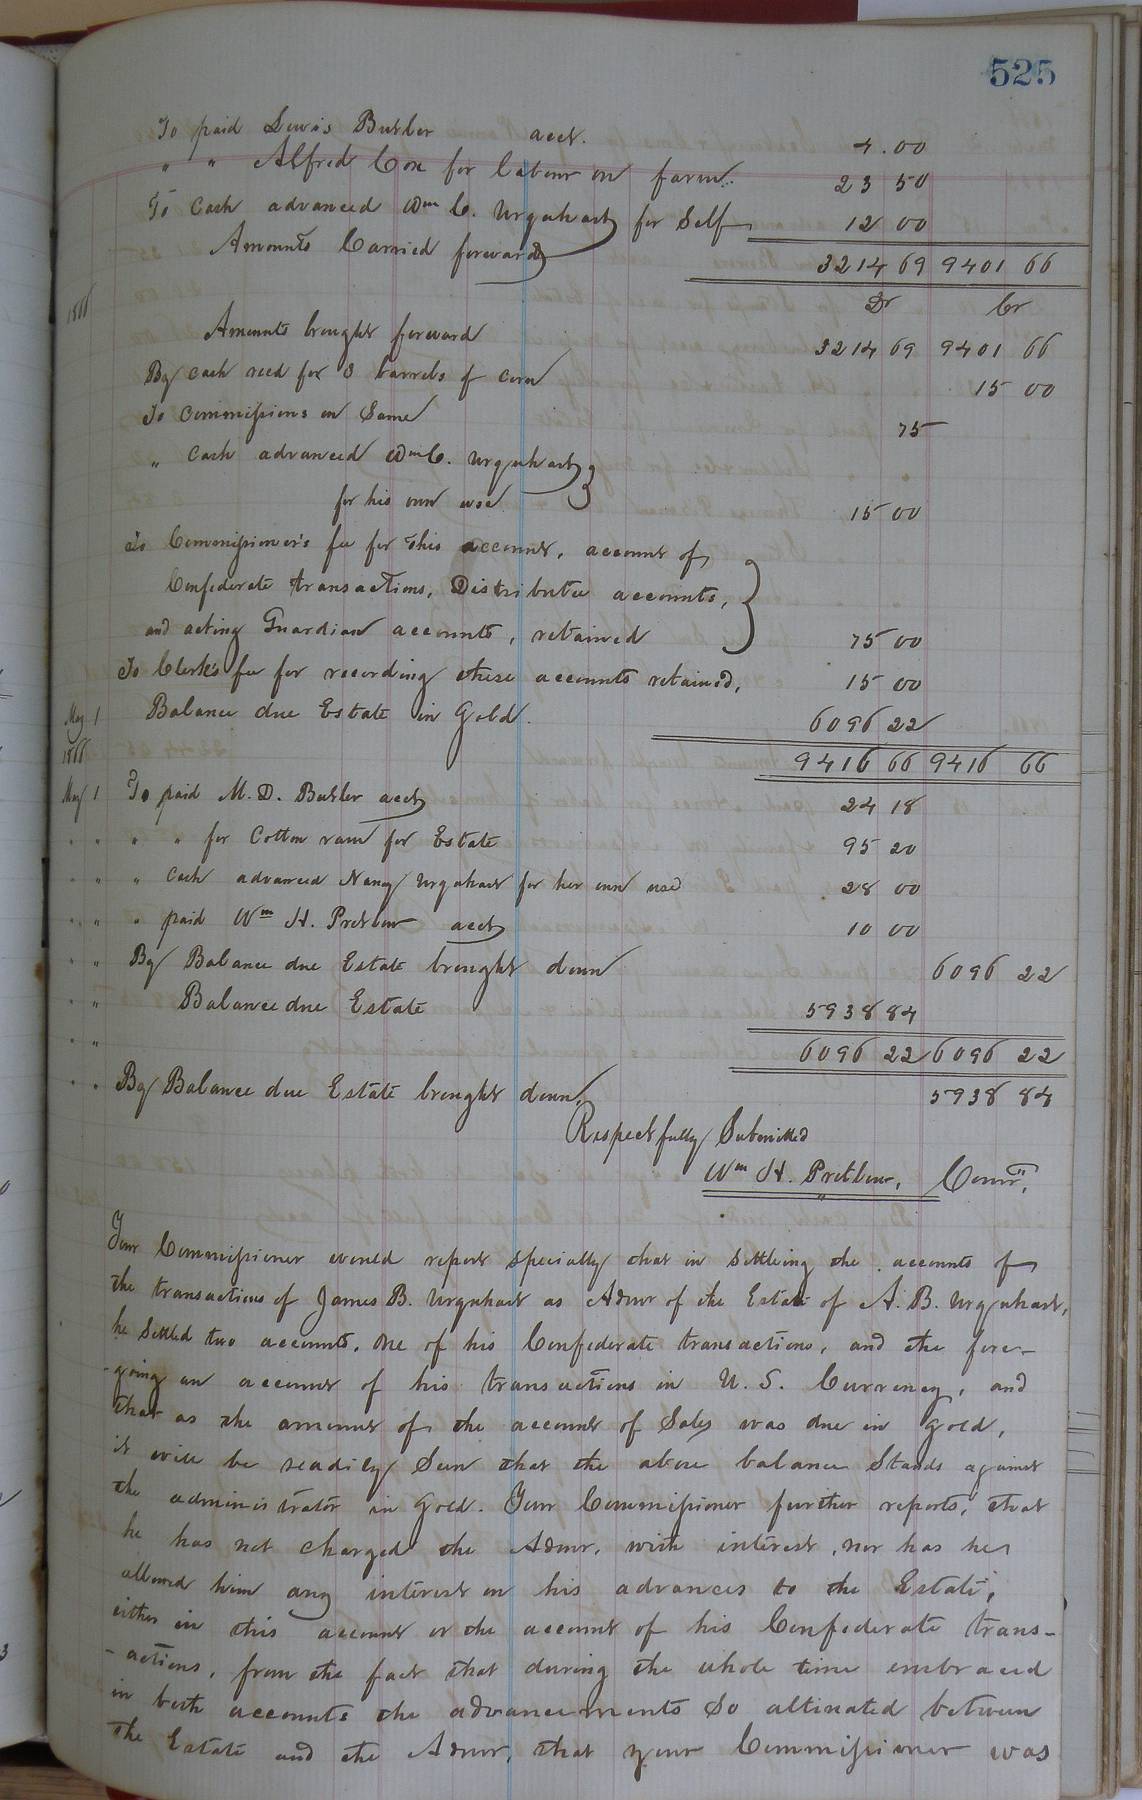 525
To paid Lewis Butler acct. 4.00
" " Alfred Cox for labour on farm 23 50
To Cash advanced Wm C. Urquhart for Self 12 00
Amounts Carried forward 3214 69 9401 66
1866 Dr Cr
Amounts brought forward 3214 69 9401 66
By cash recd for 3 barrels of corn 15 00
To Commissions on Same 75
" Cash advanced Wm C. Urquhart }
for his own use 15 00
To Commissioner's fee for this account, account of
Confederate transactions, Distributee accounts, }
and acting Guardian accounts, retained 75 00
To Clerk's fee for recording these accounts retained, 15 00
May 1 Balance due Estate in Gold. 6096 22
1866 9416 66 9416 66
May 1 To paid M. D. Butler acct 24 18
" " " " for Cotton for Estate 95 20
" " " Cash advanced Nancy Urquhart for her own use 28 00
" " " paid Wm H. Pretlow acct 10 00
" " By Balance due Estate brought down 6096 22
" " Balance due Estate 5938 84
" " 6096 22 6096 22
" " By Balance due Estate brought down. 5938 84
Respectfully Submitted
Wm H. Pretlow, Comr.
Your Commissioner would report specially that in settleing the accounts of
the transactions of James B. Urquhart as Admr of the Estate of A. B. Urquhart,
he Settled two accounts, one of his Confederate transactions, and the fore-
-going an account of his transactions in U. S. Currency, and
that as the amount of the account of Sales was due in gold,
it will be readily Seen that the above balance Stands against
the administrator in Gold. Your Commissioner further reports, that
he has not charged the Admr. with interest, nor has he
allowed him any interest on his advances to the Estate,
either in this account or the account of his Confederate trans-
-actions, from the fact that during the whole time embraced
in both accounts the advancements So altinated between
the Estate and the Admr. that your Commissioner was